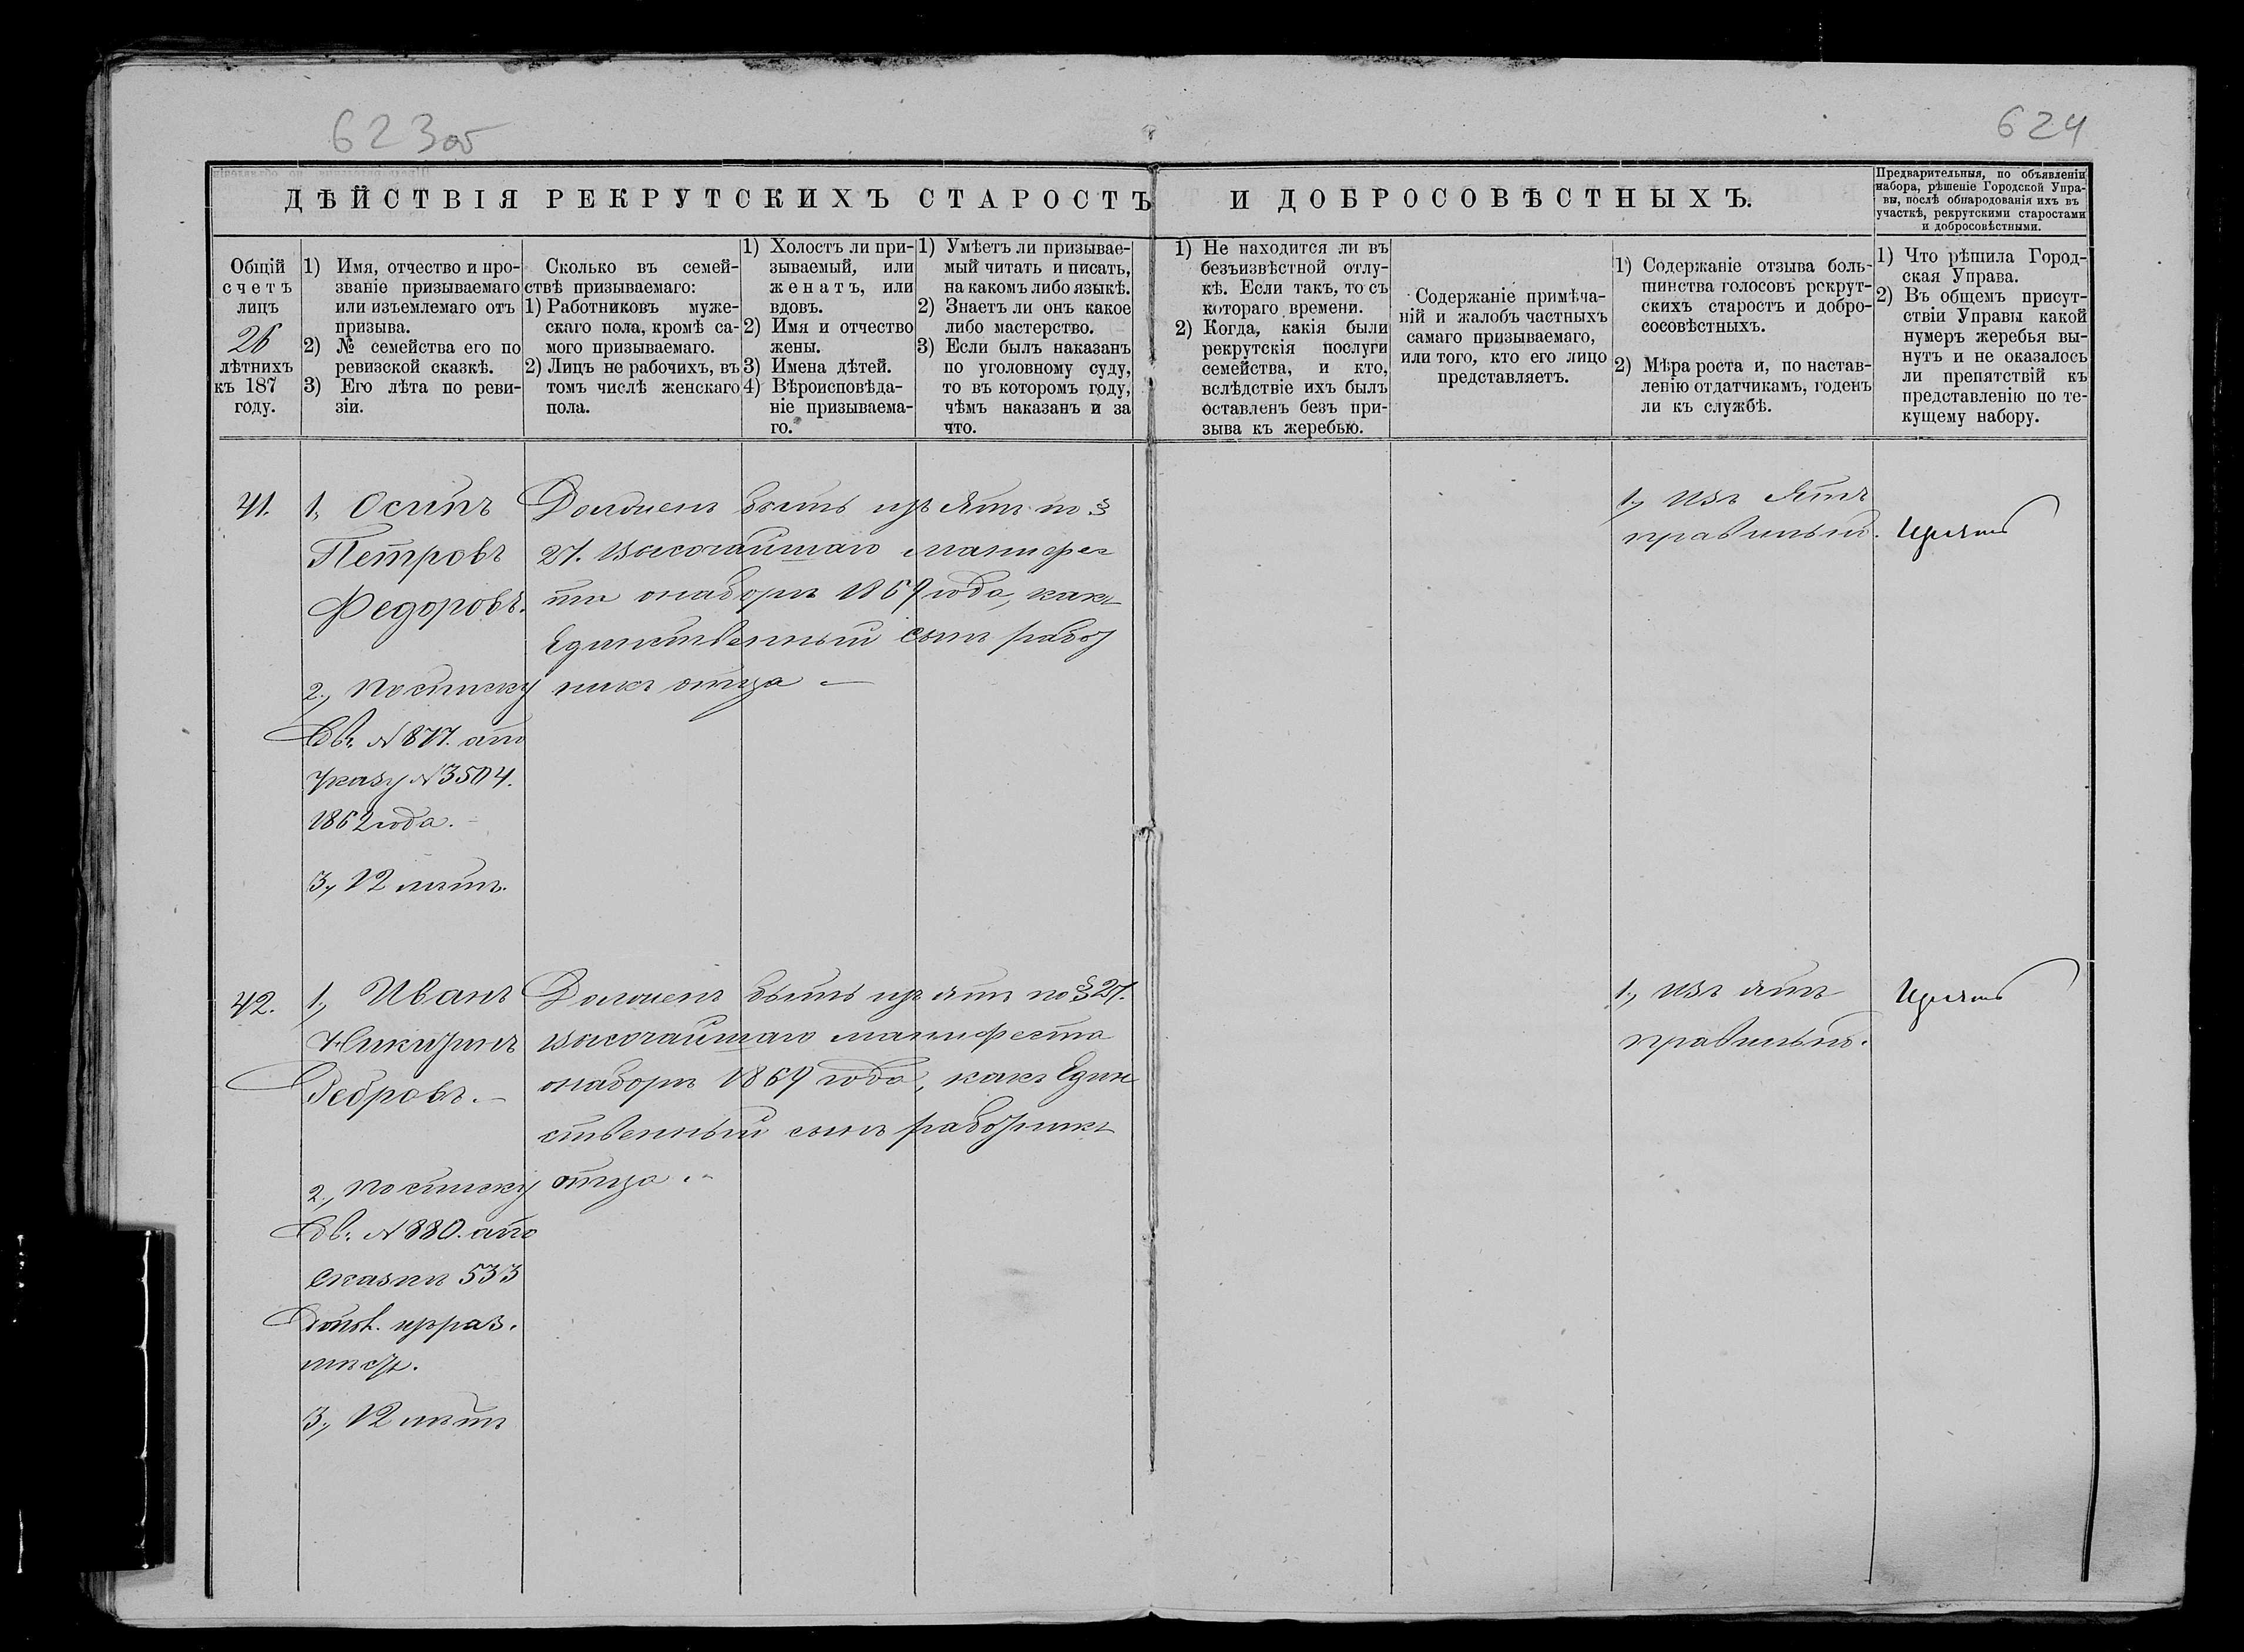 623об
624
ДѢЙСТВІЯ РЕКРУТСКИХЪ СТАРОСТЪ И ДОБРОСОВѢСТНЫХЪ.
Предварительныя, по объявленіи
набора, рѣшеніе Городской Упра-
вы, послѣ обнародованія ихъ въ
участкѣ, рекрутскими старостами
и добросовѣстными.
Общій
счетъ
лицъ
26
лѣтнихъ
къ 187
году.
1) Имя, отчество и про-
званіе призываемаго
или изъемлемаго отъ
призыва.
2) № семейства его по
ревизской сказкѣ.
3) Его лѣта по реви-
зіи.
Сколько въ семей-
ствѣ призываемаго:
1) Работниковъ муже-
скаго пола, кромѣ са-
мого призываемаго.
2) Лицъ не рабочихъ, въ
томъ числѣ женскаго
пола.
1) Холостъ ли при-
зываемый, или
женатъ, или
вдовъ.
2) Имя и отчество
жены.
3) Имена дѣтей.
4) Вѣроисповѣда-
ніе призываема-
го.
1) Умѣетъ ли призывае-
мый читать и писать,
на какомъ либо языкѣ.
2) Знаетъ ли онъ какое
либо мастерство.
3) Если былъ наказанъ
по уголовному суду,
то въ которомъ году,
чѣмъ наказанъ и за
что.
1) Не находится ли въ
безъизвѣстной отлу-
кѣ. Если такъ, то съ
котораго времени.
2) Когда, какія были
рекрутскія послуги
семейства, и кто,
вслѣдствіе ихъ былъ
оставленъ безъ при-
зыва къ жеребью.
Содержаніе примѣча-
ній и жалобъ частныхъ
самаго призываемаго,
или того, кто его лицо
представляетъ.
1) Содержаніе отзыва боль-
шинства голосовъ рекрут-
скихъ старостъ и добро-
сосовѣстныхъ.
2) Мѣра роста и, по настав-
ленію отдатчикамъ, годенъ
ли къ службѣ.
1) Что рѣшила Город-
ская Управа.
2) Въ общемъ присут-
ствіи Управы какой
нумеръ жеребья вы-
нутъ и не оказалось
ли препятствій къ
представленію по те-
кущему набору.
41.
1, Осипъ
Петровъ
Федоровъ.
2., По списку
Св. № 877. а по
указу № 3504.
1862 года.
3, 12 лѣтъ.
Долженъ быть изъятъ по §
27. Высочайшаго манифес
та о наборѣ 1869 года, какъ
Единственный сынъ работ
никъ отца —
1., Изъ Ятъ
правильно.
Изъять
42.
1., Иванъ
Никитинъ
Ребровъ. —
2., По списку
Св. № 880. а по
Сказкѣ 533
3., 12 лѣтъ
Долженъ быть изъ ятъ по § 27.
Высочайшаго манифеста
о наборѣ 1869 года, какъ Един
ственный сынъ работникъ
отца. —
1., Изъ ятъ
правильно.
Изъять